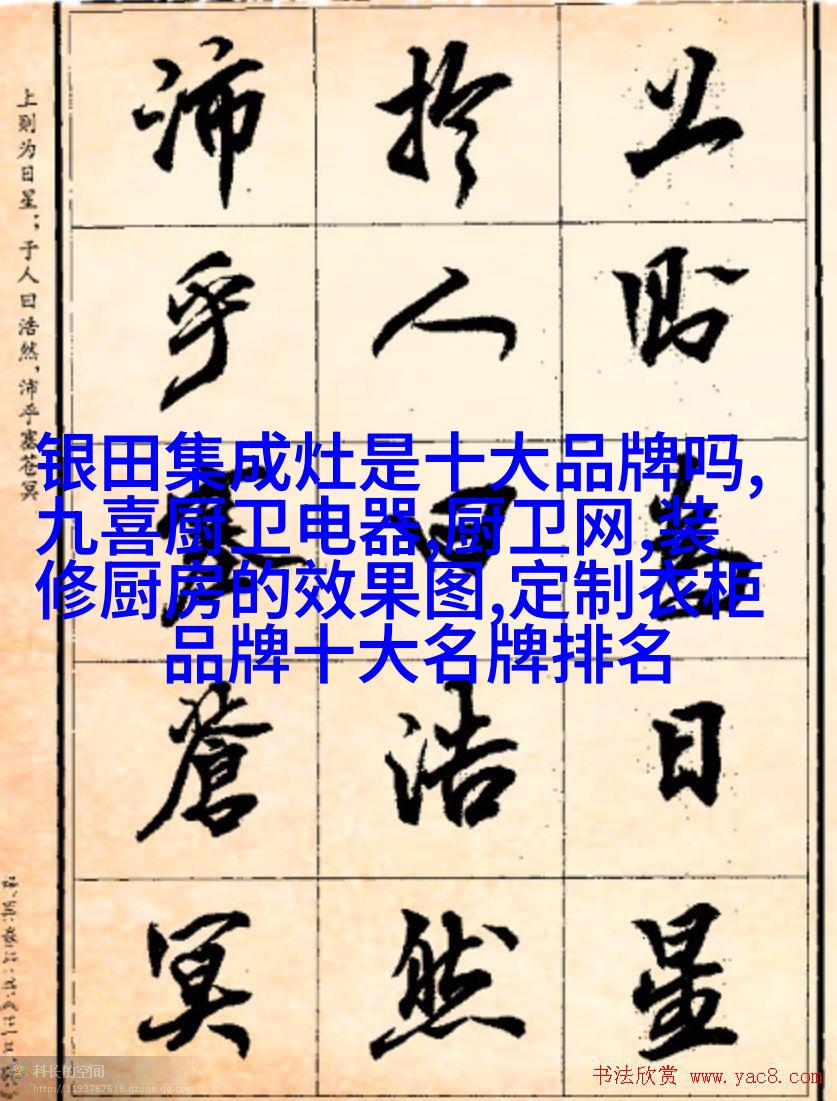 上則為日星
扵人曰浩然
沛乎塞蒼冥
上则为日星；于人曰浩然，沛乎塞苍冥
银田集成灶是十大品牌吗,
九喜厨卫电器,厨卫网,装
修厨房的效果图,定制衣柜
品牌十大名牌排名
科长的空间
http://1193767618.qzone.qq.com
书法欣赏 www.yac8.com